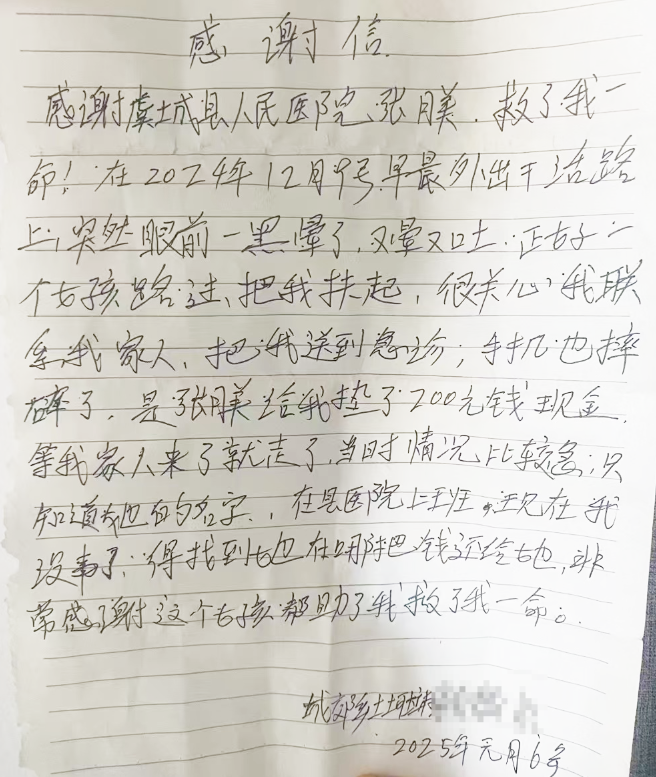 感谢信.
感谢虞城县人民医院张美.救了我一
命!在2024年12月9号早晨外出干活路
上,突然眼前一黑晕了,又晕又吐.正好一
个女孩路过、把我扶起,很关心我联
系我家人,把我送到急诊;手机也摔
碎了,是张美给我垫了200元钱现金.
等我家人来了就走了,当时情况比较急,只
知道她的名字.,在县医院上班.现在我
没事了,得找到她在哪把钱还给她,非
常感谢这个女孩帮助了我救了我一命。
城郊乡土
2025年元月6号